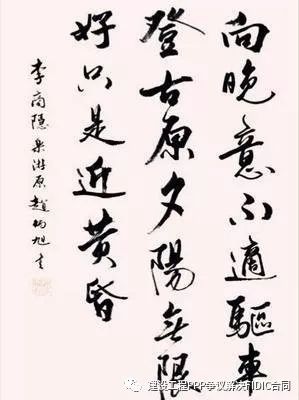 向晚意不適驅車
登古原夕陽無限
好只是近黃昏
李商隱樂游原趙炳旭书
建设工程PPP争议解决和FIDIC合同